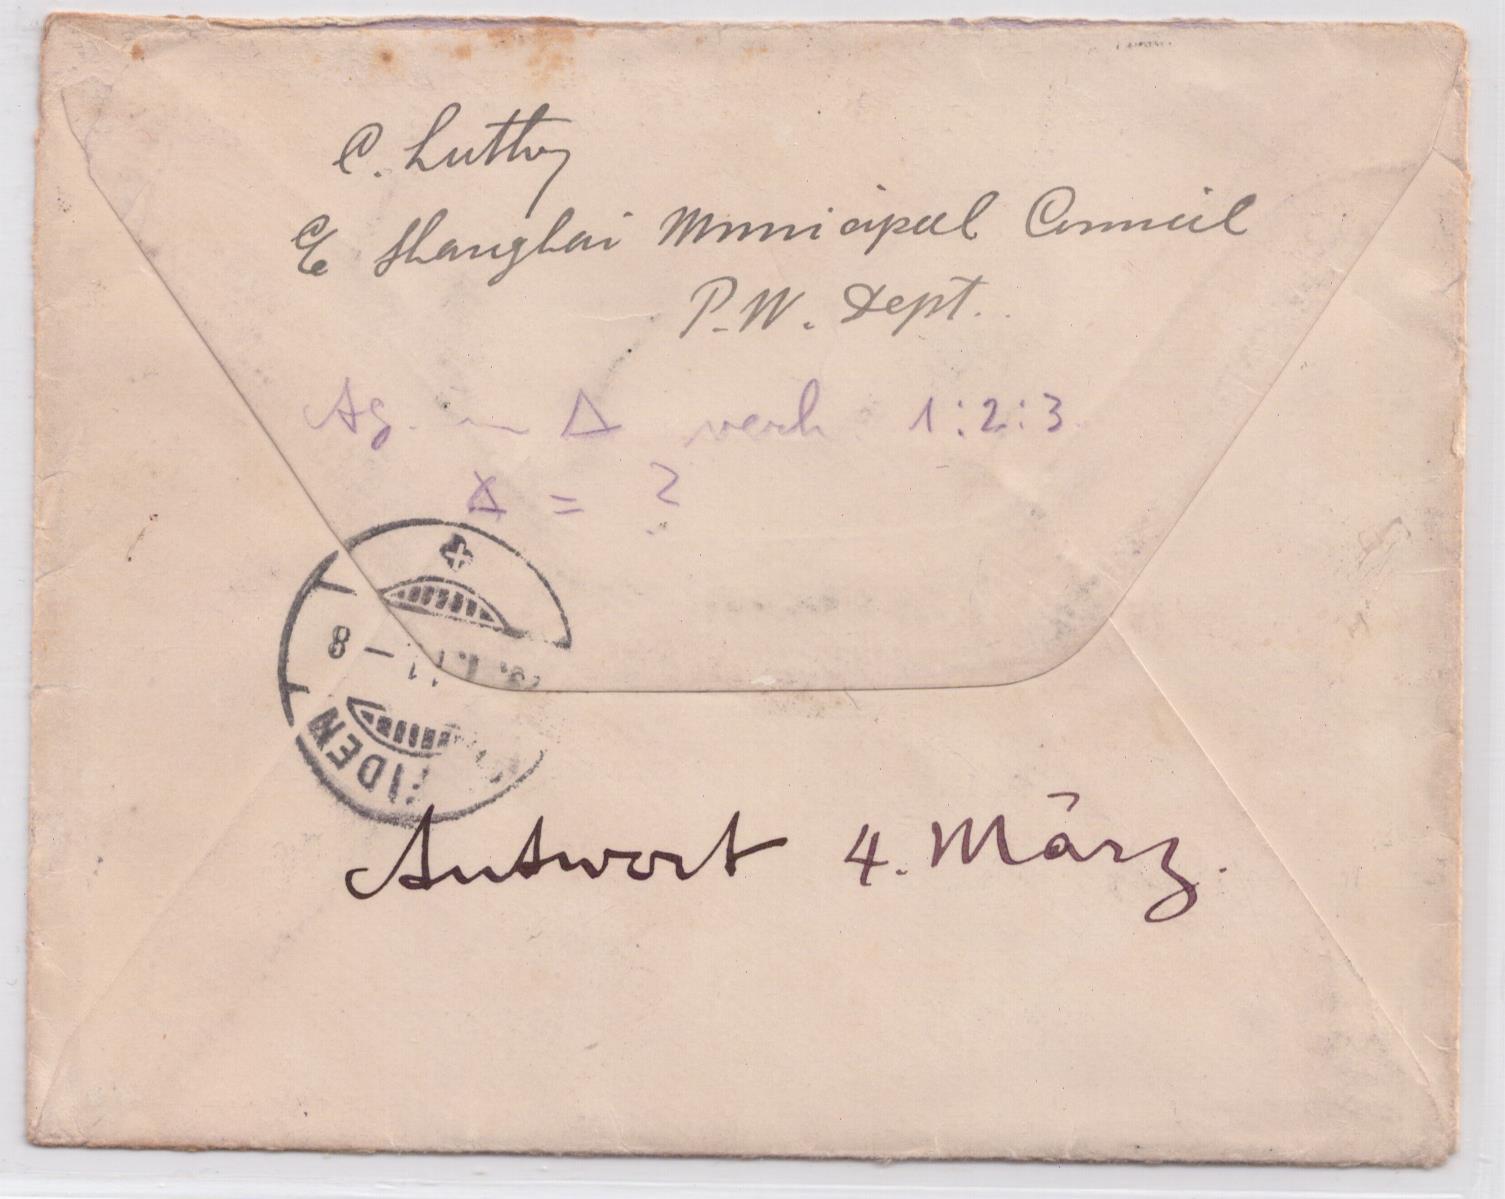 C. Luthy
c/o Shanghai Municipal Council
P.W. Dept.
in Δ verh. 1:2:3.
= ?
8
IDEN
Antwort 4. März.